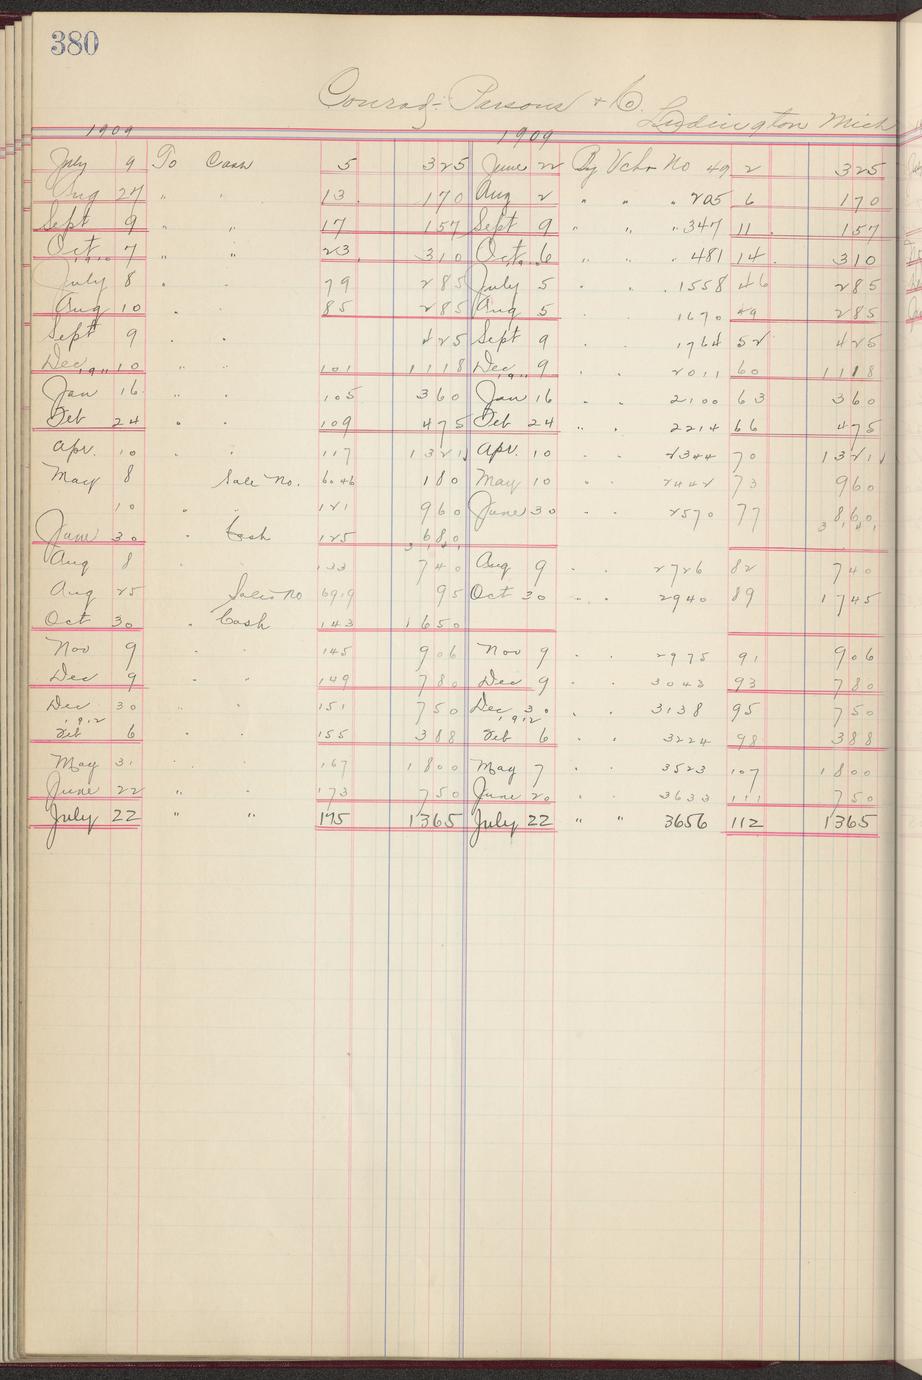 380
Conrad-Parsons & Co. Luddington Mich
1909 1909
July 9 To Cash 5 325 June 22 By Vchr No 49 2 325
Aug 27 " " 13 170 Aug 2 " " " 205 6 170
Sept 9 " " 17 157 Sept 9 " " " 347 11 157
Oct 7 " " 23 310 Oct 6 " " " 481 14 310
1910 1910
July 8 " " 79 285 July 5 " " " 1558 46 285
Aug 10 " 85 285 Aug 5 " " 1670 49 285
Sept 9 " " 425 Sept 9 " " 1764 52 425
Dec 10 " " 101 1118 Dec 9 " " 2011 60 1118
1911 1911
Jan 16 " " 105 360 Jan 16 " " 2100 63 360
Feb 24 " " 109 475 Feb 24 " " 2214 66 475
Apr. 10 " " 117 1321 Apr. 10 " " 2344 70 1321
May 8 Sale No. 6046 180 May 10 " " 2442 73 960
10 " " 121 960 June 30 " " 2570 77 860
June 30 " Cash 125 680
Aug 8 " " 133 740 Aug 9 " " 2726 82 740
Aug 25 Sales No 6919 95 Oct 30 " " 2940 89 1745
Oct 30 " Cash 143 1650
Nov 9 " " 145 906 Nov 9 " " 2975 91 906
Dec 9 " " 149 780 Dec 9 " " 3043 93 780
Dec 30 " " 151 750 Dec 30 " " 3138 95 750
1912 1912
Feb 6 155 388 Feb 6 " " 3224 98 388
May 31 " " 167 1800 May 7 " " 3523 107 1800
June 22 " " 173 750 June 20 " " 3633 111 750
July 22 " " 175 1365 July 22 " " 3656 112 1365